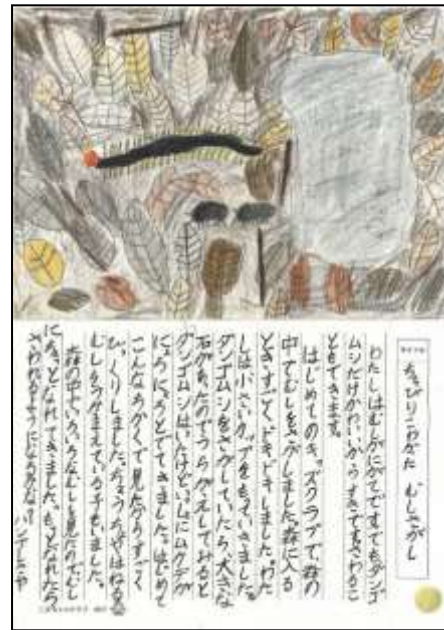 タイトル
ちょっぴりこわかた むしさがし
わたしはむしがにがてですでもダンゴ
ムシだけかわいいからすきですさわるこ
ともできます。
はじめてのキッズクラブで、森の
中でむしをさがしました。森に入る
ときすごくどきどきしました。わた
しは小さいカップをもっていきました。
ダンゴムシをさがしていたら、大きな
石があったのでうらがえしてみると
ダンゴムシはいたけどいっしょにムカデが
にょろにょろとでてきました。はじめて
こんなちかくで見たからすごく
びっくりしました。
むしをつかまえている子もいました。
森の中でいろいろなむしを見たのでむし
にちょっとなれてきました。もっとなれたら
さわれるようになるかな？